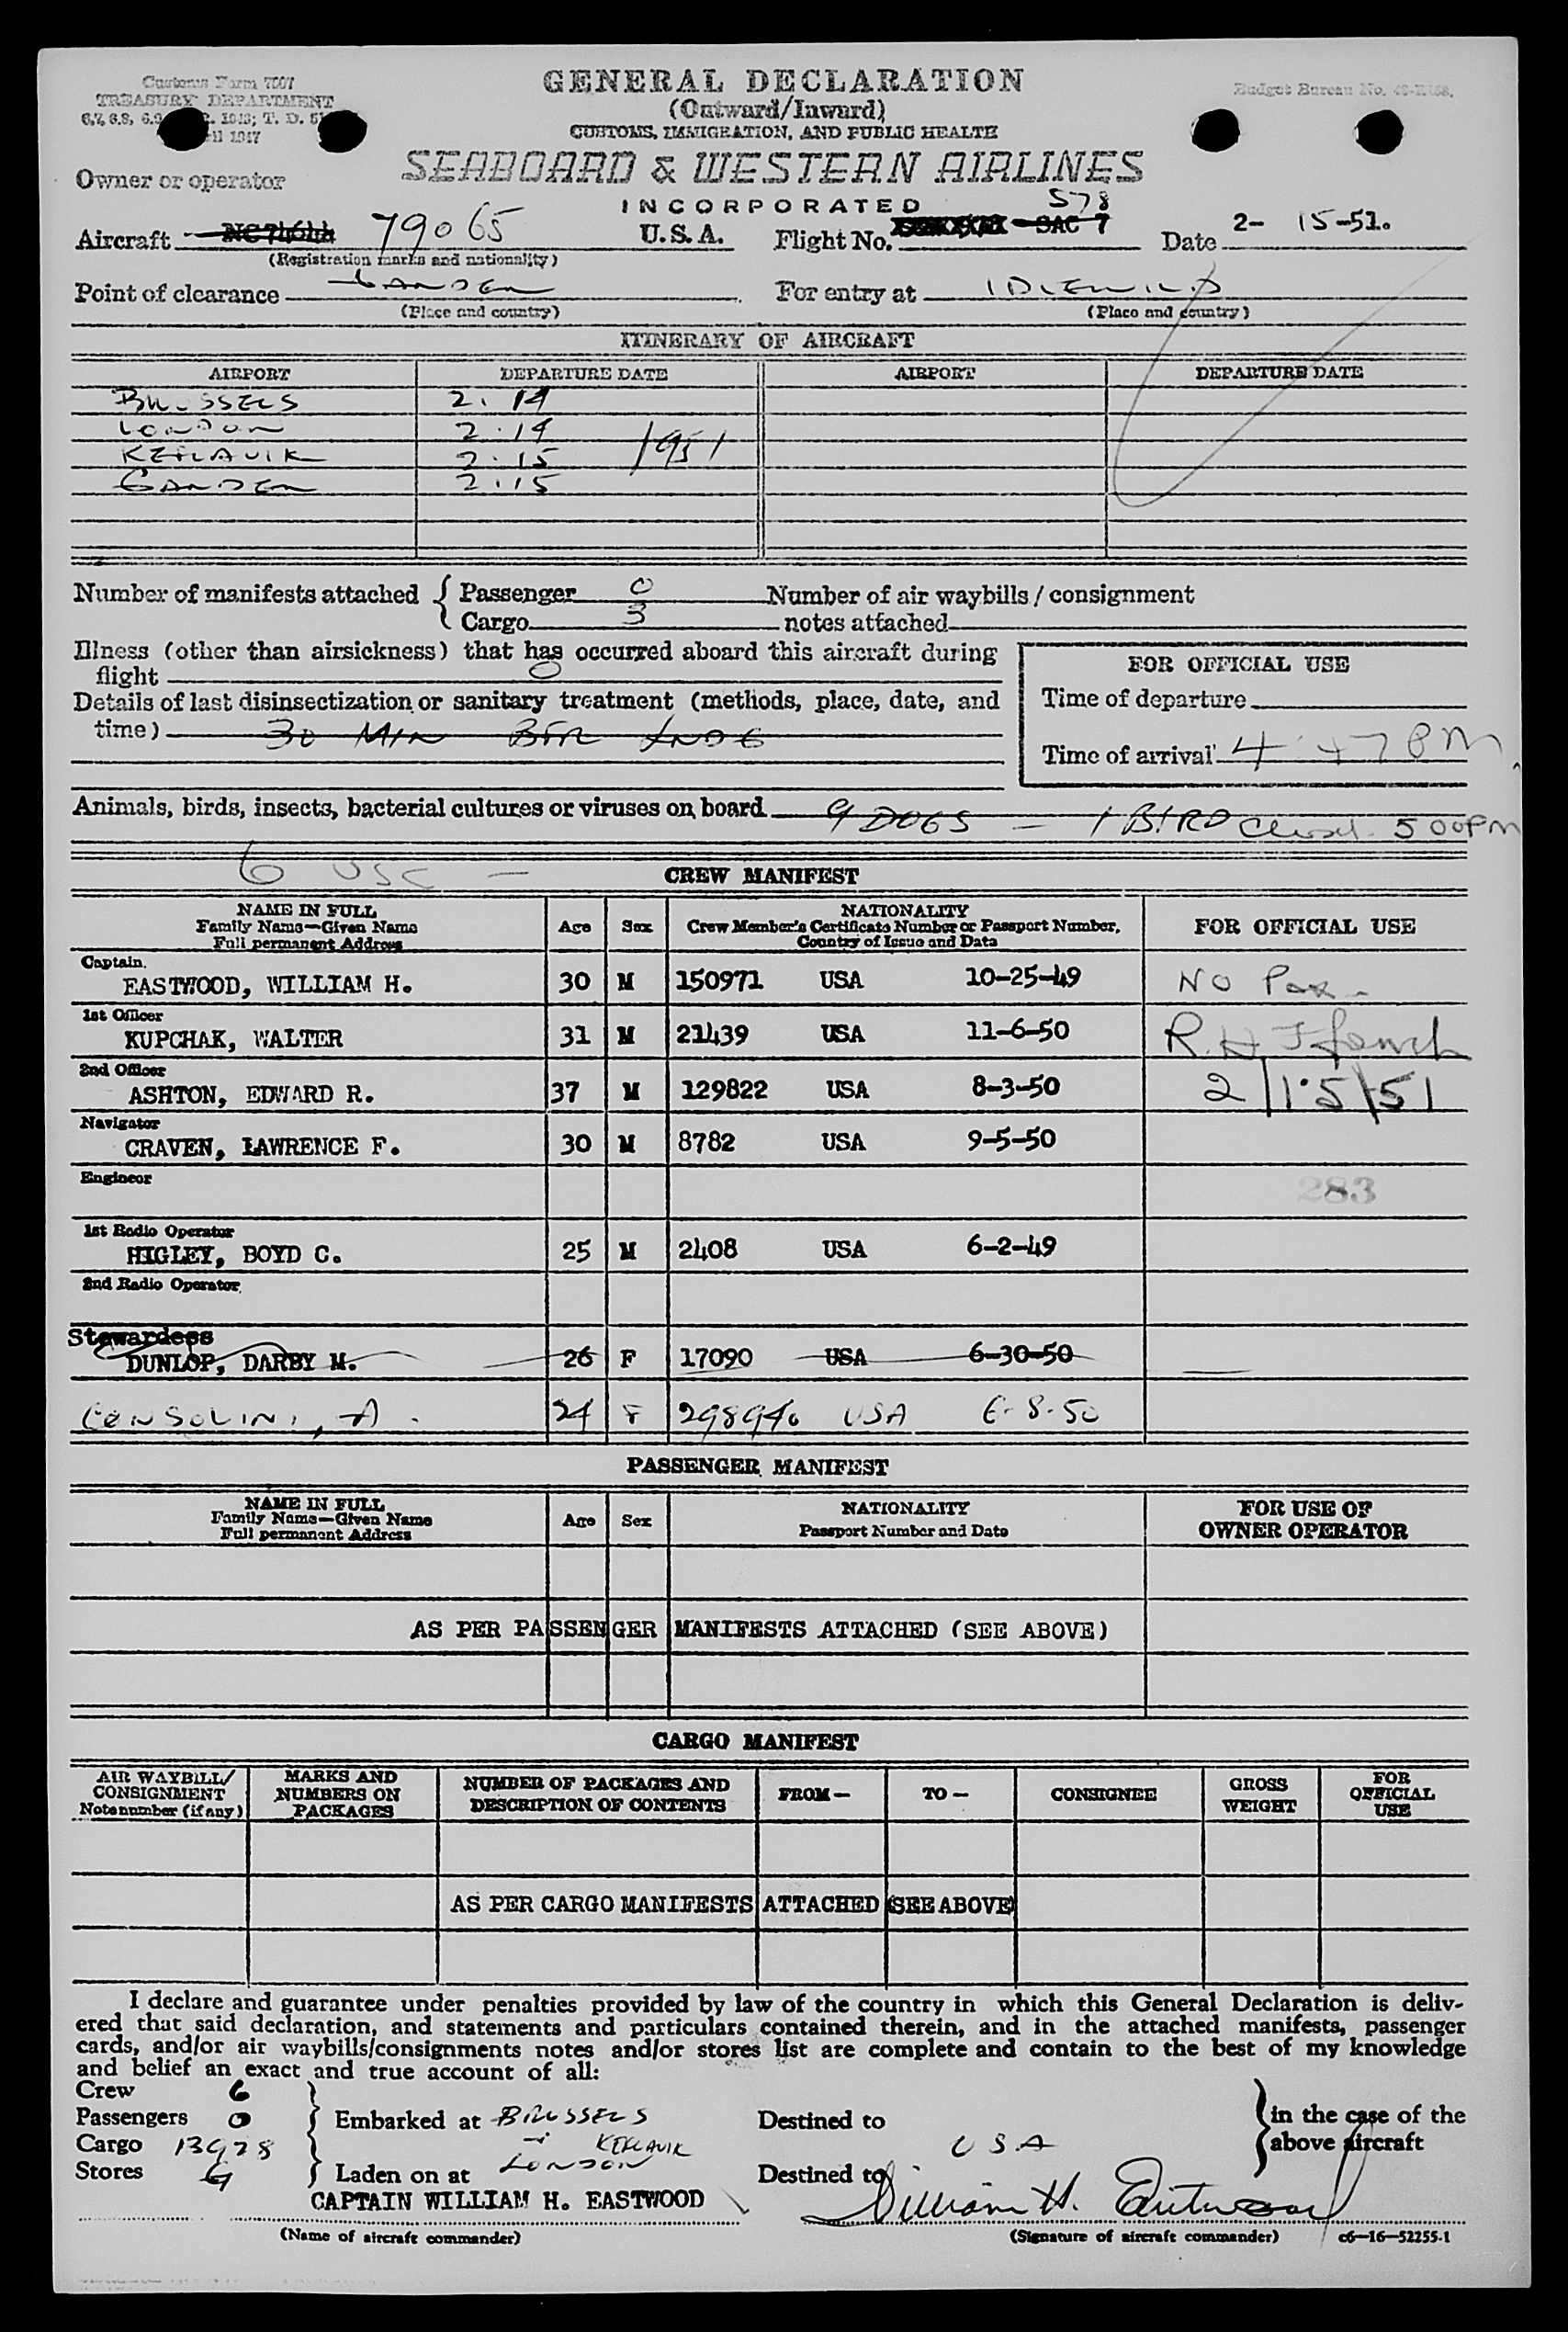 Customs Form 7507
TREASURY DEPARTMENT
1947
GENERAL DECLARATION
(Outward/Inward)
CUSTOMS, IMMIGRATION, AND PUBLIC HEALTH
Budget Bureau No.
SEABOARD & WESTERN AIRLINES
INCORPORATED
Owner or operator
578
Aircraft 79065 U.S.A. Flight No. SAC 7 Date 2- 15-51.
(Registration marks and nationality)
Point of clearance GANDER For entry at IDLEWILD
(Place and country) (Place and country)
ITINERARY OF AIRCRAFT
AIRPORT DEPARTURE DATE AIRPORT DEPARTURE DATE
BRUSSELS 2.14
LONDON 2.14
KEFLAVIK 2.15 1951
GANDER 2.15
Number of manifests attached { Passenger 0 Number of air waybills / consignment
Cargo 3 notes attached
Illness (other than airsickness) that has occurred aboard this aircraft during
flight 0
Details of last disinsectization or sanitary treatment (methods, place, date, and
time) 30 MIN BFR LNDG
FOR OFFICIAL USE
Time of departure
Time of arrival 4 47 PM
Animals, birds, insects, bacterial cultures or viruses on board 9 DOGS - 1 BIRD Closed 500PM
6 USC -
CREW MANIFEST
NAME IN FULL
Family Name—Given Name
Full permanent Address
Age Sex
NATIONALITY
Crew Member's Certificate Number or Passport Number,
Country of Issue and Date
FOR OFFICIAL USE
Captain.
EASTWOOD, WILLIAM H. 30 M 150971 USA 10-25-49 NO Pax -
1st Officer
KUPCHAK, WALTER 31 M 21439 USA 11-6-50
2nd Officer
ASHTON, EDWARD R. 37 M 129822 USA 8-3-50 2/15/51
Navigator
CRAVEN, LAWRENCE F. 30 M 8782 USA 9-5-50
Engineer
283
1st Radio Operator
HIGLEY, BOYD C. 25 M 2408 USA 6-2-49
2nd Radio Operator
Stewardess
DUNLOP, DARBY M. 26 F 17090 USA 6-30-50
CONSOLINI, A. 24 F 298940 USA 6-8-50
PASSENGER MANIFEST
NAME IN FULL
Family Name—Given Name
Full permanent Address
Age Sex
NATIONALITY
Passport Number and Date
FOR USE OF
OWNER OPERATOR
AS PER PASSENGER MANIFESTS ATTACHED (SEE ABOVE)
CARGO MANIFEST
AIR WAYBILL/
CONSIGNMENT
Note number (if any)
MARKS AND
NUMBERS ON
PACKAGES
NUMBER OF PACKAGES AND
DESCRIPTION OF CONTENTS
FROM—
TO—
CONSIGNEE
GROSS
WEIGHT
FOR
OFFICIAL
USE
AS PER CARGO MANIFESTS ATTACHED (SEE ABOVE)
I declare and guarantee under penalties provided by law of the country in which this General Declaration is deliv-
ered that said declaration, and statements and particulars contained therein, and in the attached manifests, passenger
cards, and/or air waybills/consignments notes and/or stores list are complete and contain to the best of my knowledge
and belief an exact and true account of all:
Crew 6
Passengers 0 Embarked at BRUSSELS Destined to in the case of the
Cargo 13928 KEFLAVIK USA above aircraft
Stores Laden on at LONDON Destined to
CAPTAIN WILLIAM H. EASTWOOD William H. Eastwood
(Name of aircraft commander) (Signature of aircraft commander) c6—16—52255-1